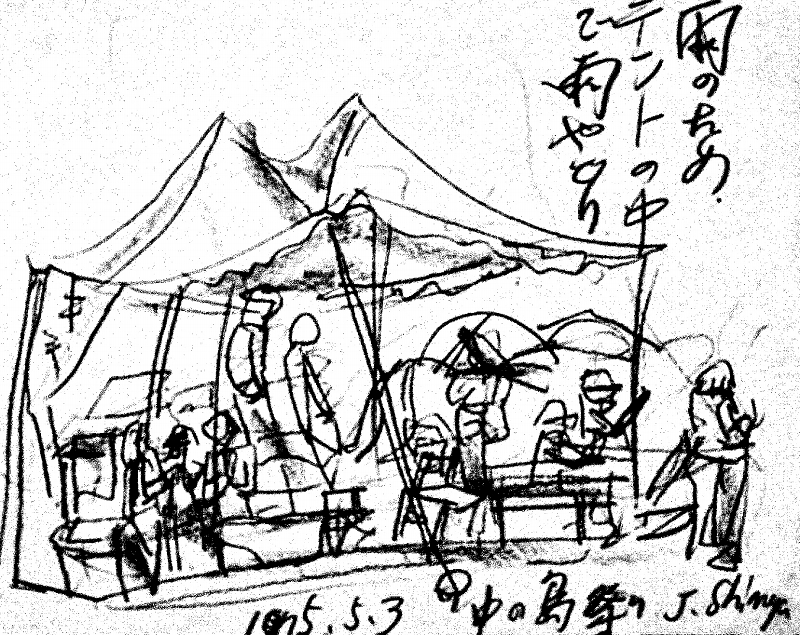 雨のため
テントの中
で雨やどり
1995.5.3 中の島祭り J. Shinya